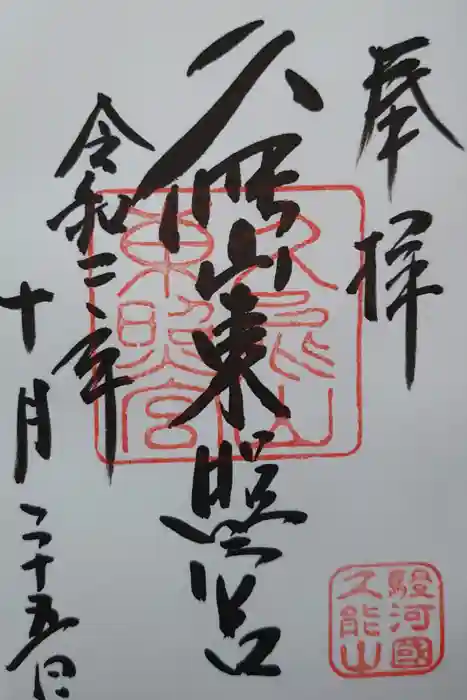 奉拝
久能山東照宮
令和二年
十月二十五日
久能山
東照宮
駿河國
久能山